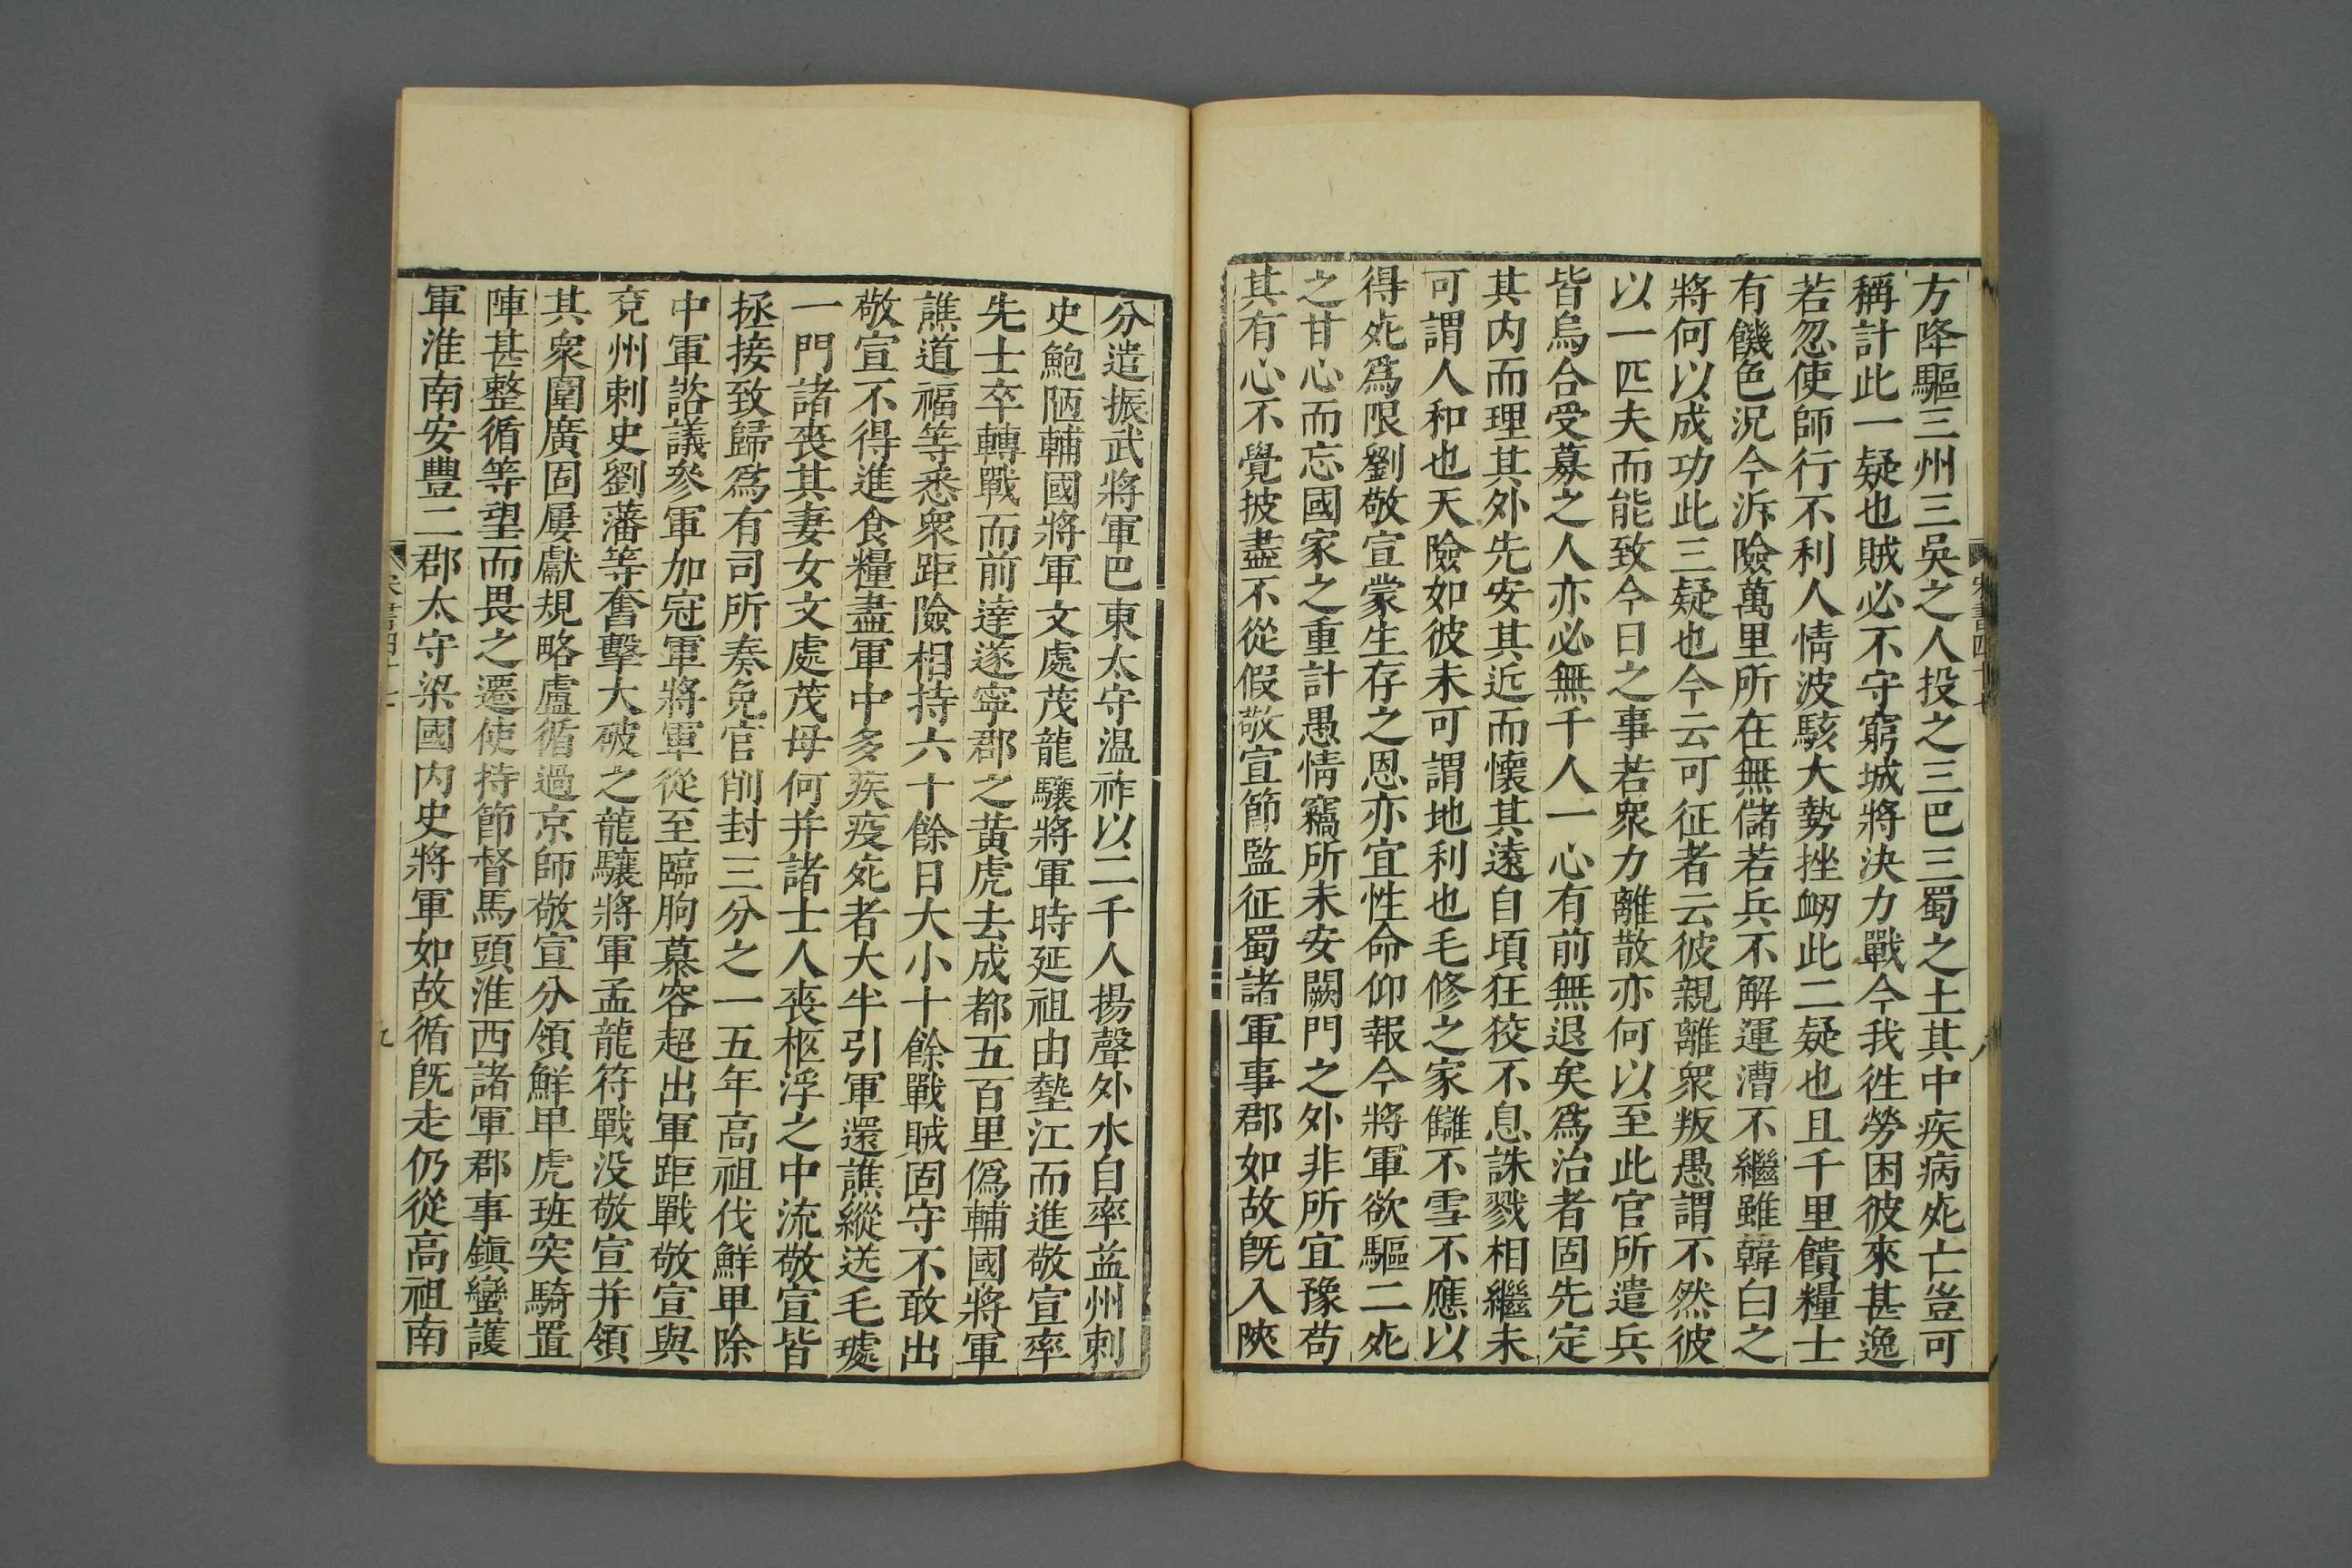 宋書四十七
八
方降驅三州三吳之人投之三巴三蜀之土其中疾病死亡豈可
稱計此一疑也賊必不守窮城將決力戰今我徃勞困彼來甚逸
若忽使師行不利人情波駭大勢挫衂此二疑也且千里饋糧士
有饑色況今泝險萬里所在無儲若兵不解運漕不繼雖韓白之
將何以成功此三疑也今云可征者云彼親離衆叛愚謂不然彼
以一匹夫而能致今日之事若衆力離散亦何以至此官所遣兵
皆烏合受募之人亦必無千人一心有前無退矣爲治者固先定
其内而理其外先安其近而懷其遠自頃狂狡不息誅戮相繼未
可謂人和也天險如彼未可謂地利也毛修之家讎不雪不應以
得死爲限劉敬宣蒙生存之恩亦宜性命仰報今將軍欲驅二死
之甘心而忘國家之重計愚情竊所未安闕門之外非所宜豫苟
其有心不覺披盡不從假敬宣節監征蜀諸軍事郡如故旣入陜
分遣振武將軍巴東太守温祚以二千人揚聲外水自率益州刺
史鮑陋輔國將軍文處茂龍驤將軍時延祖由墊江而進敬宣率
先士卒轉戰而前達遂寧郡之黄虎去成都五百里僞輔國將軍
譙道福等悉衆距險相持六十餘日大小十餘戰賊固守不敢出
敬宣不得進食糧盡軍中多疾疫死者大半引軍還譙縱送毛璩
一門諸喪其妻女文處茂母何并諸士人喪柩浮之中流敬宣皆
拯接致歸爲有司所奏免官削封三分之一五年高祖伐鮮卑除
中軍諮議參軍加冠軍將軍從至臨朐慕容超出軍距戰敬宣與
兗州刺史劉藩等奮擊大破之龍驤將軍孟龍符戰没敬宣并領
其衆圍廣固屢獻規略盧循過京師敬宣分領鮮卑虎班突騎置
陣甚整循等望而畏之遷使持節督馬頭淮西諸軍郡事鎭蠻護
軍淮南安豐二郡太守梁國内史將軍如故循旣走仍從高祖南
宋書四十七
九